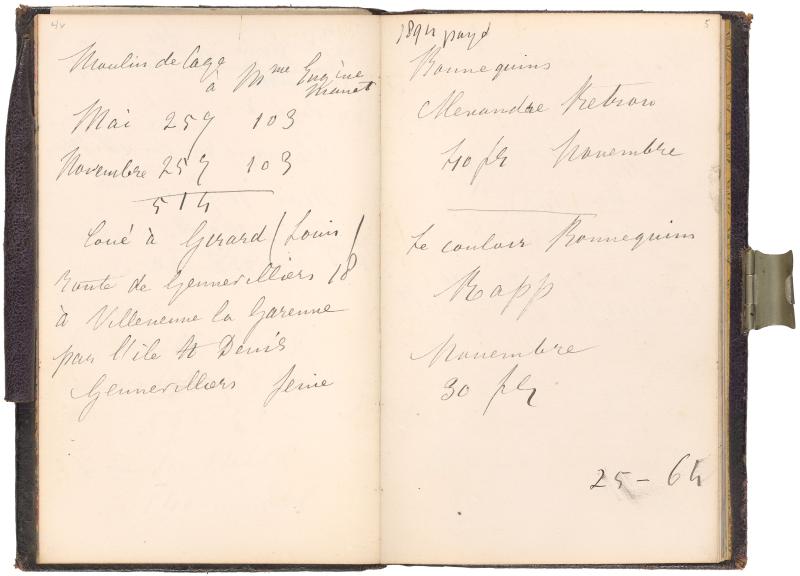 4v
Moulin de Cage
à Mme Eugène
Manet
Mai 257 103
Novembre 257 103
514
Loué à Gérard (Louis)
Route de Gennevilliers 18
à Villeneuve la Garenne
par l'ile St Denis
Gennevilliers Seine
5
1894 payé
Bonnequins
Alexandre Retrou
40 fr Novembre
Le couloir Bonnequins
Rapp
Novembre
30 fr
25 - 64